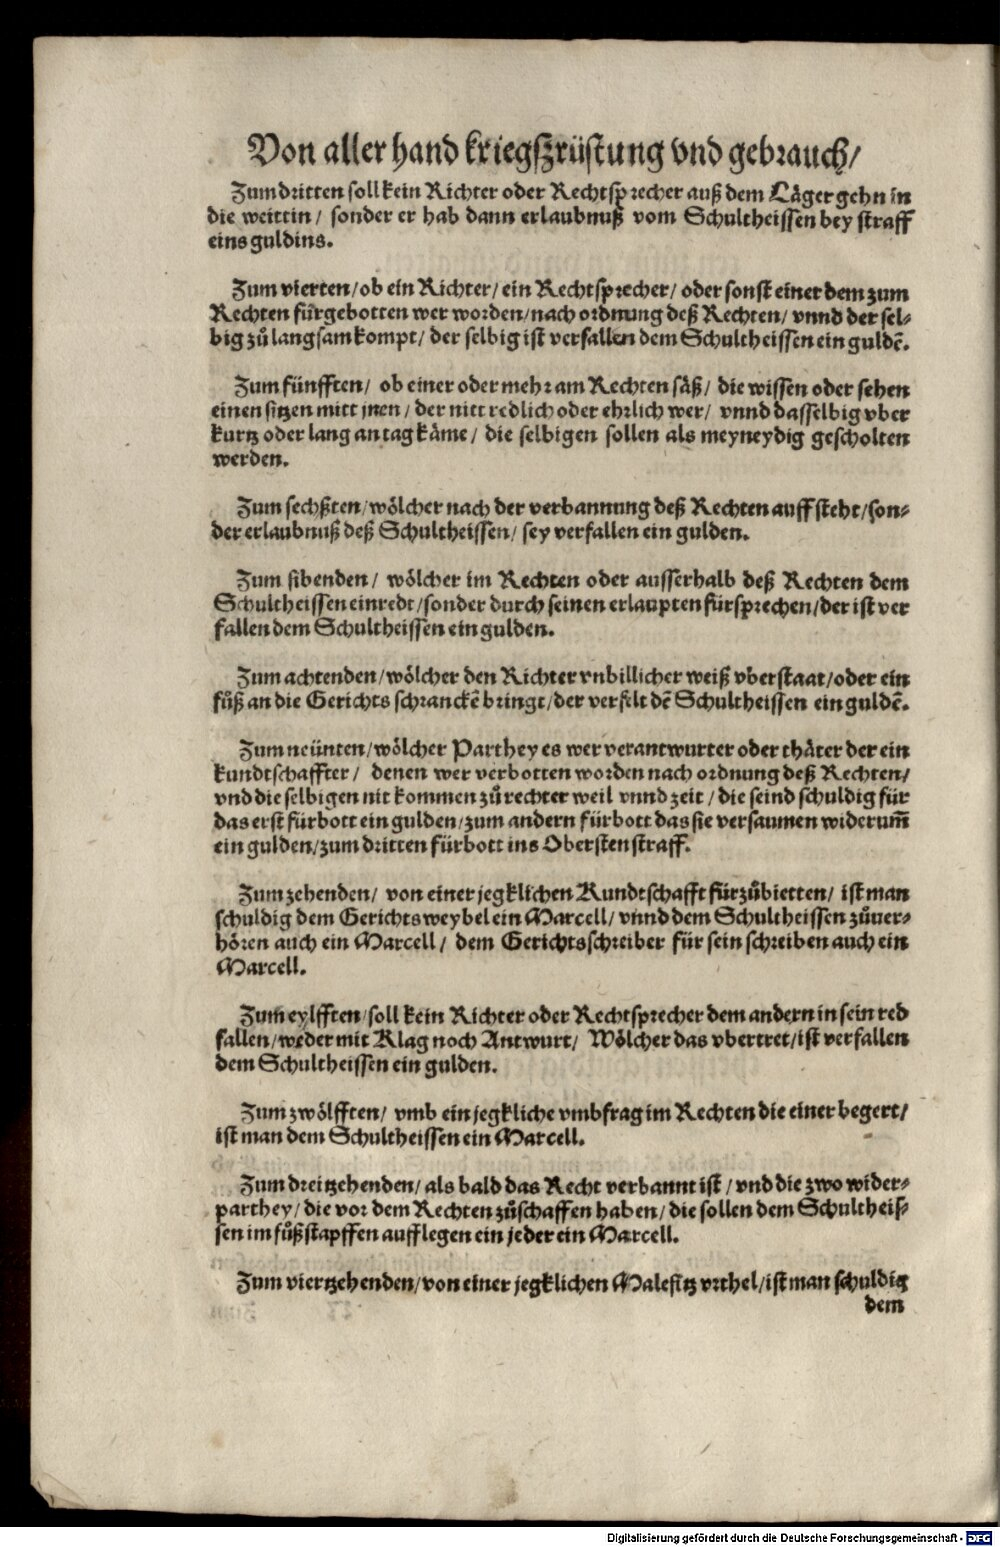 Von aller hand kriegszrüstung vnd gebrauch/
Zum dritten soll kein Richter oder Rechtsprecher auß dem Läger gehn in
die weittin/ sonder er hab dann erlaubnuß vom Schultheissen bey straff
eins guldins.
Zum vierten/ ob ein Richter/ ein Rechtsprecher/ oder sonst einer dem zum
Rechten fürgebotten wer worden/ nach ordnung deß Rechten/ vnnd der sel-
big zů langsam kompt/ der selbig ist verfallen dem Schultheissen ein guldē.
Zum fünfften/ ob einer oder mehr am Rechten säß/ die wissen oder sehen
einen sitzen mitt jnen/ der nitt redlich oder ehrlich wer/ vnnd dasselbig vber
kurtz oder lang an tag käme/ die selbigen sollen als meyneydig gescholten
werden.
Zum sechßten/ wölcher nach der verbannung deß Rechten auff steht/ son-
der erlaubnuß deß Schultheissen/ sey verfallen ein gulden.
Zum sibenden/ wölcher im Rechten oder ausserhalb deß Rechten dem
Schultheissen einredt/ sonder durch seinen erlaupten fürsprechen/ der ist ver
fallen dem Schultheissen ein gulden.
Zum achtenden/ wölcher den Richter vnbillicher weiß vberstaat/ oder ein
fůß an die Gerichts schranckē bringt/ der verfelt dē Schultheissen ein guldē.
Zum neünten/ wölcher Parthey es wer verantwurter oder thäter der ein
kundtschaffter/ denen wer verbotten worden nach ordnung deß Rechten/
vnd die selbigen nit kommen zů rechter weil vnnd zeit/ die seind schuldig für
das erst fürbott ein gulden/ zum andern fürbott das sie versaumen widerum̄
ein gulden/ zum dritten fürbott ins Obersten straff.
Zum zehenden/ von einer jegklichen Kundtschafft fürzůbietten/ ist man
schuldig dem Gerichtsweybel ein Marcell/ vnnd dem Schultheissen zůuer-
hören auch ein Marcell/ dem Gerichtsschreiber für sein schreiben auch ein
Marcell.
Zum eylfften/ soll kein Richter oder Rechtsprecher dem andern in sein red
fallen/ weder mit Klag noch Antwurt/ Wölcher das vbertret/ ist verfallen
dem Schultheissen ein gulden.
Zum zwölfften/ vmb ein jegkliche vmbfrag im Rechten die einer begert/
ist man dem Schultheissen ein Marcell.
Zum dreitzehenden/ als bald das Recht verbannt ist/ vnd die zwo wider-
parthey/ die vor dem Rechten zůschaffen haben/ die sollen dem Schultheis-
sen im fůßstapffen aufflegen ein jeder ein Marcell.
Zum viertzehenden/ von einer jegklichen Malefitz vrthel/ ist man schuldig
dem
Digitalisierung gefördert durch die Deutsche Forschungsgemeinschaft - DFG